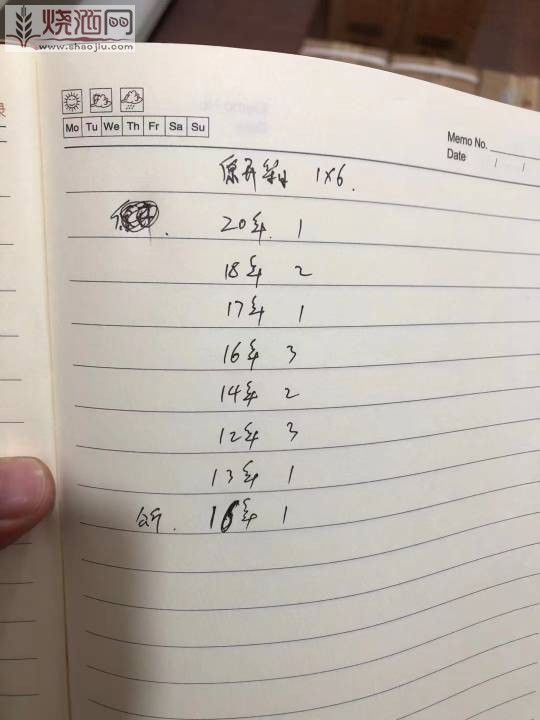 烧酒网
www.shaojiu.com
Mo Tu We Th Fr Sa Su
Memo No.
Date / /
1×6.
20年. 1
18年 2
17年 1
16年 3
14年 2
12年 3
13年 1
16年 1